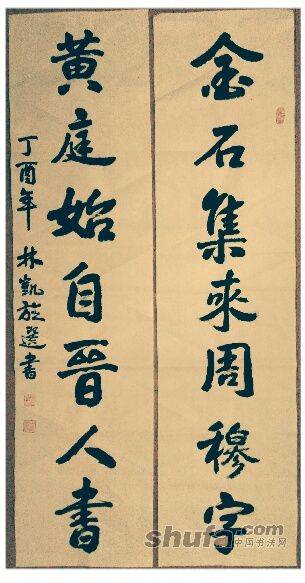 金石集來周穆字
黄庭始自晉人書
丁酉年 林凱旋選書
shufa.com
中国书法网